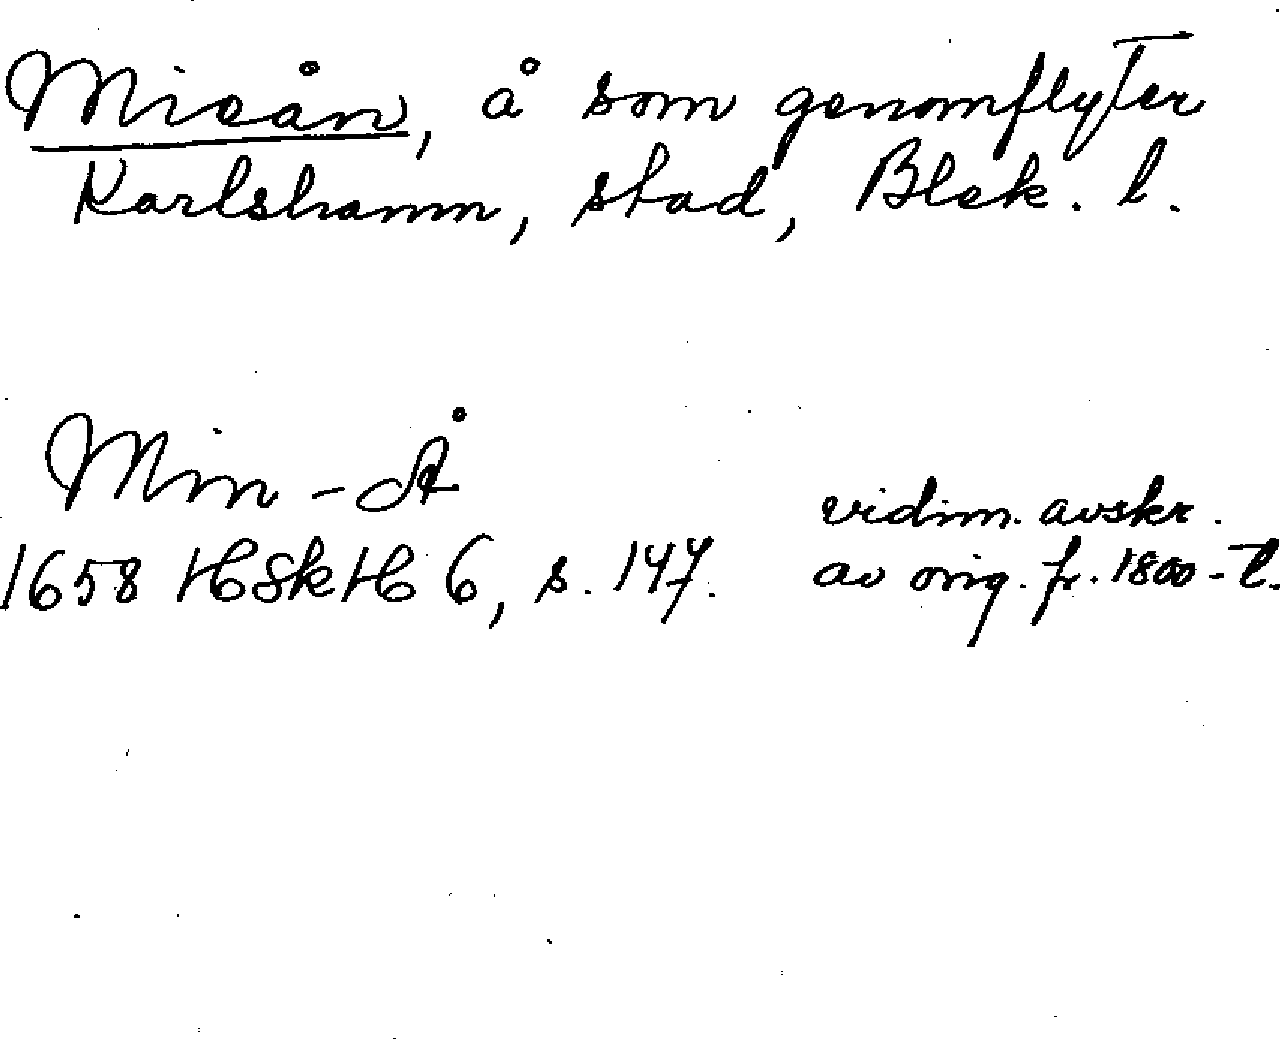 Mieån, å som genomflyter
Karlshamn, stad, Blek. l.
Min-Å
vidim. avskr.
1658 HSkH 6, s. 147. av orig. fr. 1800-t.